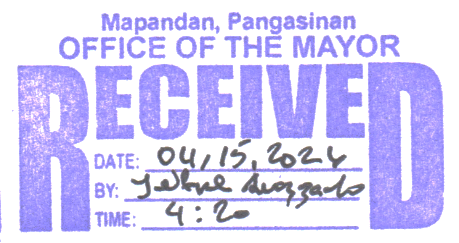 Mapandan, Pangasinan
OFFICE OF THE MAYOR
RECEIVED
DATE: 04/15, 2026
BY:
TIME: 4:20